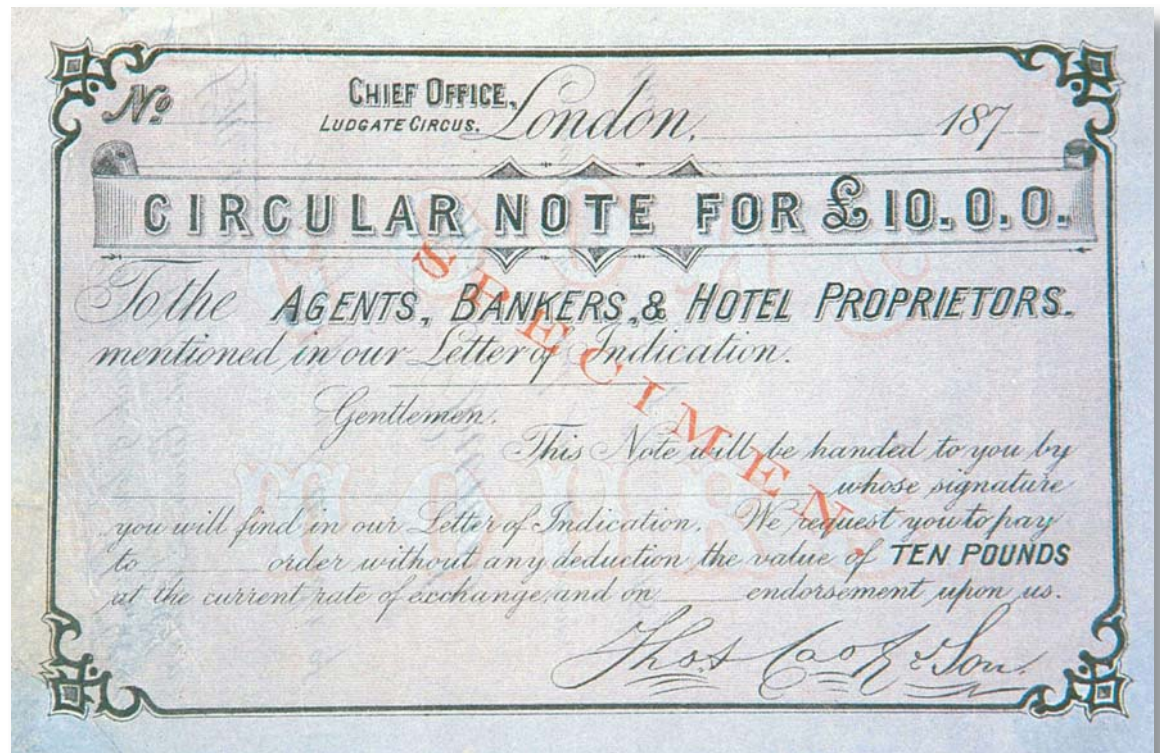 No
CHIEF OFFICE,
LUDGATE CIRCUS.
London, 187
CIRCULAR NOTE FOR £10.0.0.
To the AGENTS, BANKERS, & HOTEL PROPRIETORS.
mentioned in our Letter of Indication.
Gentlemen.
This Note will be handed to you by
whose signature
you will find in our Letter of Indication. We request you to pay
to order without any deduction the value of TEN POUNDS
at the current rate of exchange, and on endorsement upon us.
Thos Cook & Son
SPECIMEN.
COOK'S
TOURS